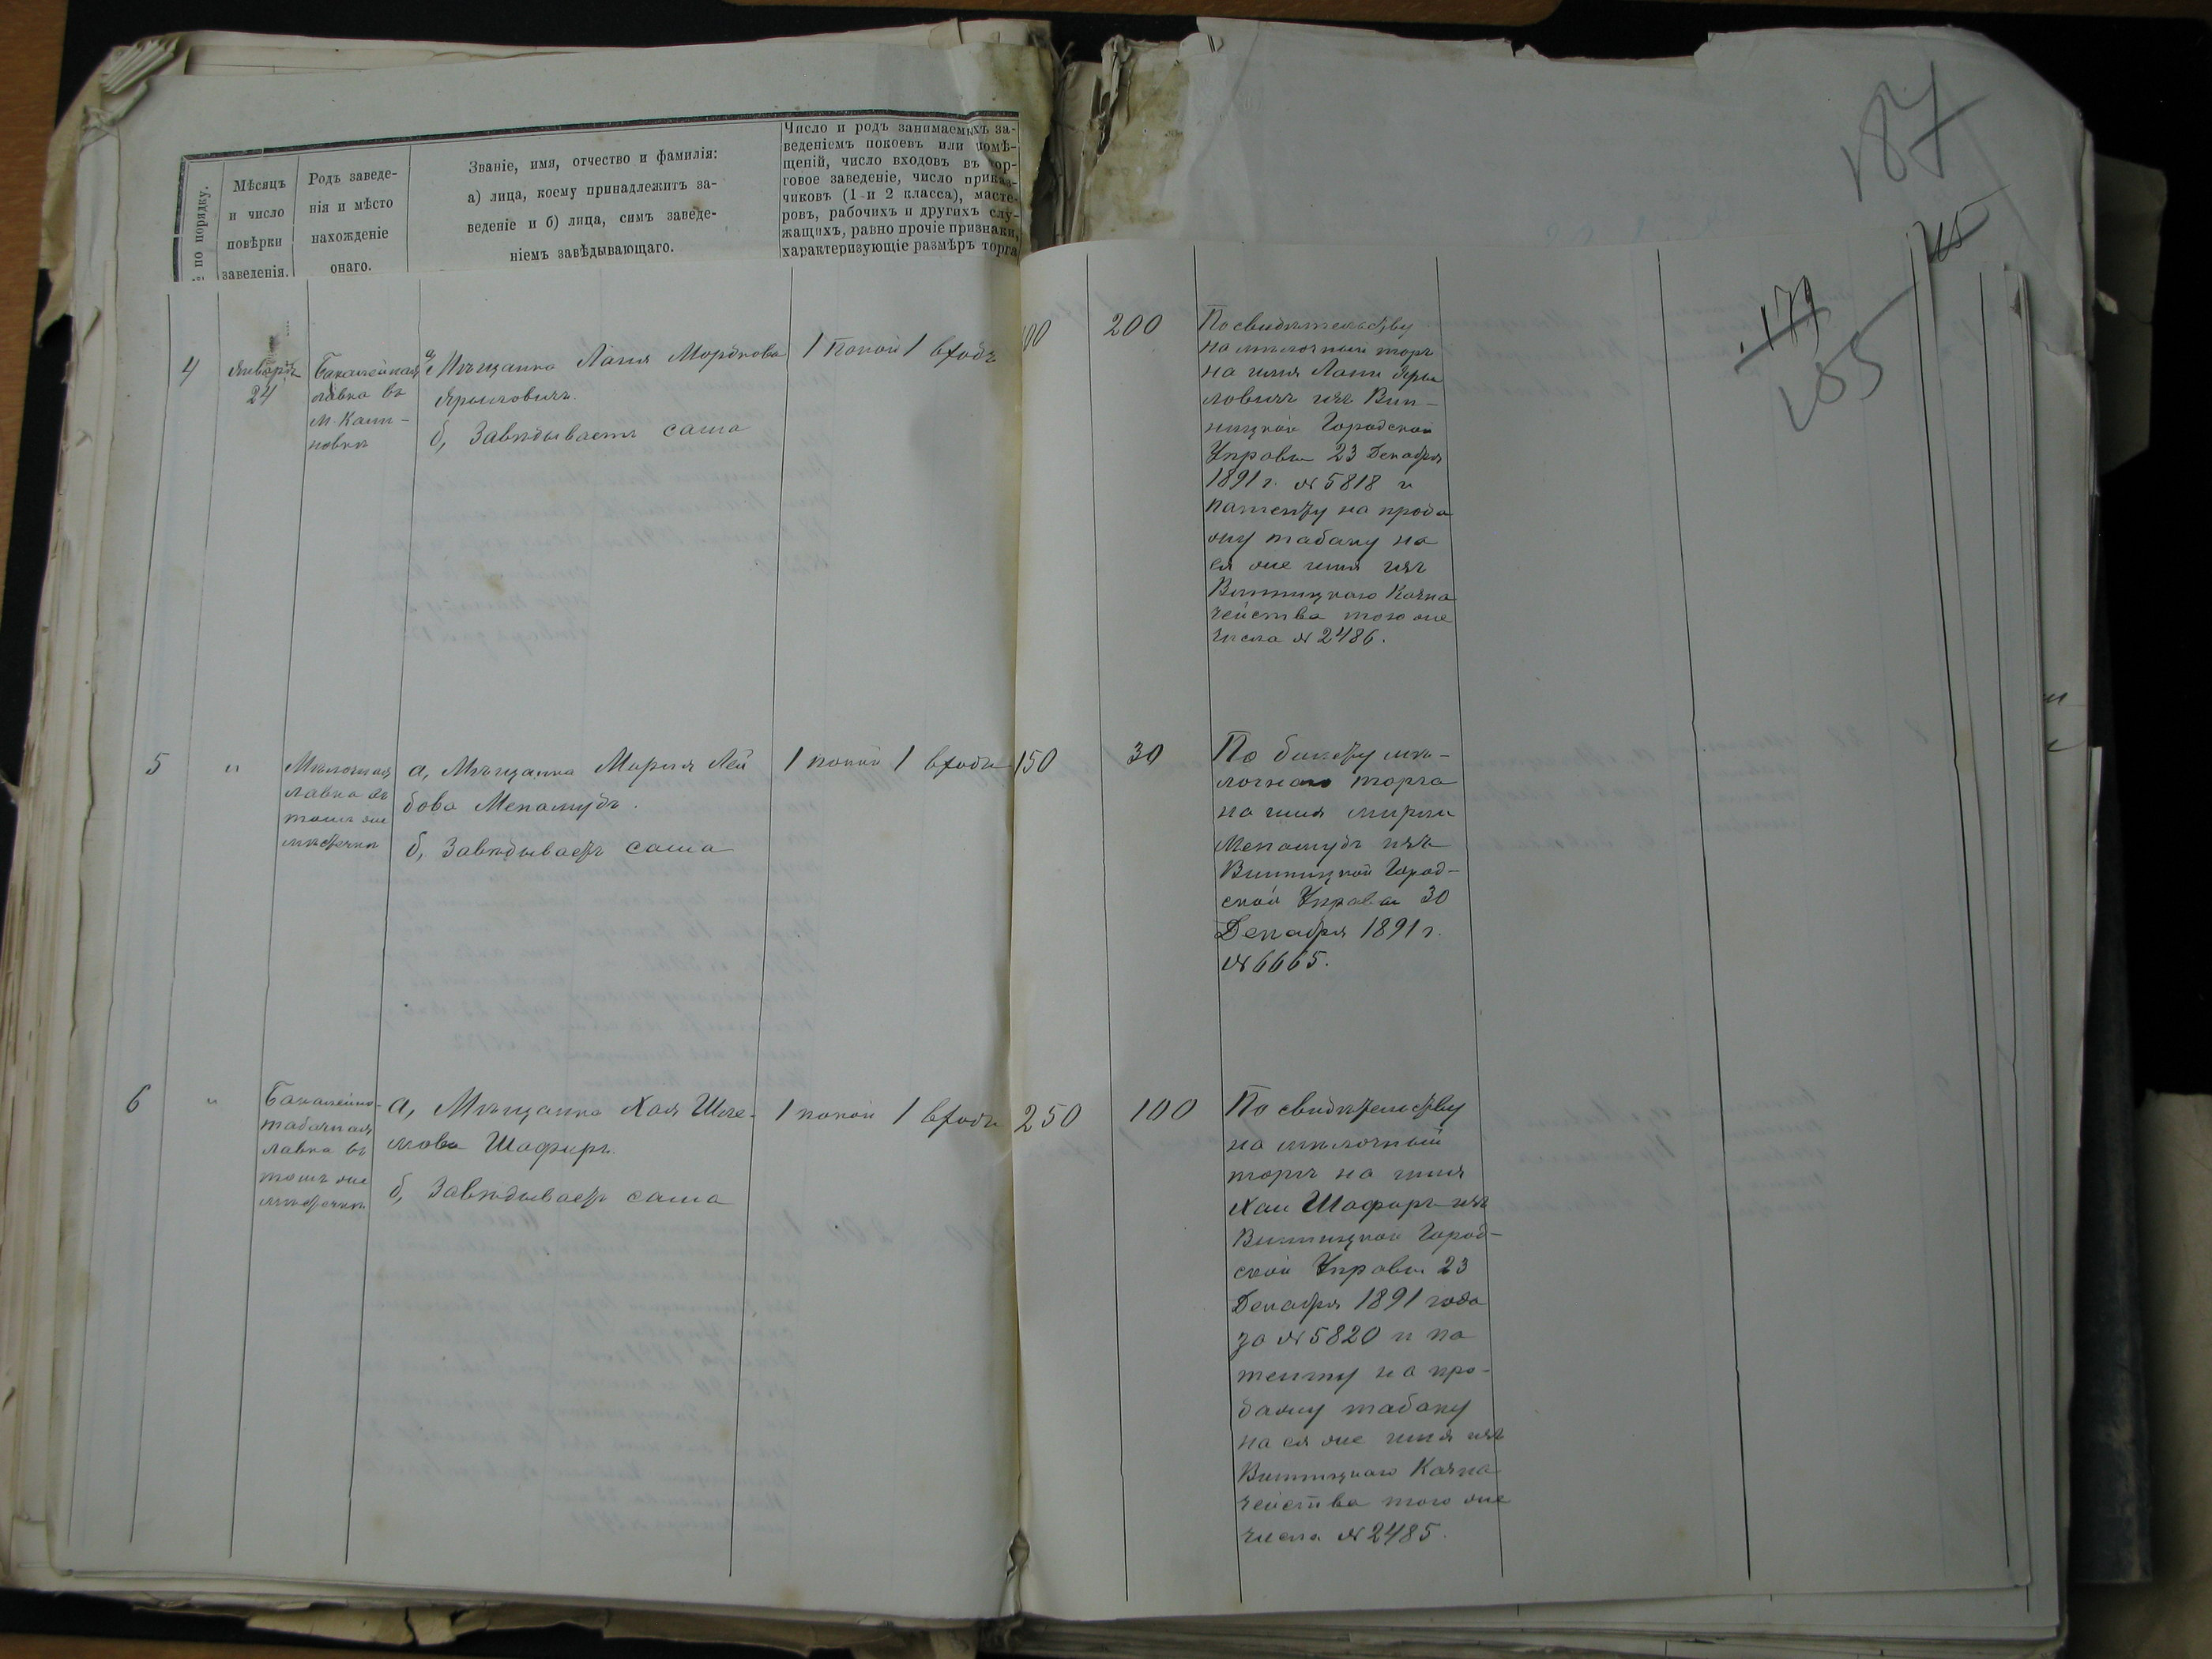 187
215
179
185
№ по порядку.
Мѣсяцъ
и число
повѣрки
заведенія.
Родъ заведе-
нія и мѣсто
нахожденіе
онаго.
Званіе, имя, отчество и фамилія:
а) лица, коему принадлежитъ за-
веденіе и б) лица, симъ заведе-
ніемъ завѣдывающаго.
Число и родъ занимаемыхъ за-
веденіемъ покоевъ или помѣ-
щеній, число входовъ въ тор-
говое заведеніе, число приказ-
чиковъ (1 и 2 класса), масте-
ровъ, рабочихъ и другихъ слу-
жащихъ, равно прочіе признаки,
характеризующіе размѣръ торга
4
Январь
24
Бакалейная
лавка въ
м. Кали-
новкѣ
а, Мѣщанка Лашя Мордкова
Ярмиловичъ.
б, Завѣдываетъ сама
1 покой 1 входъ
00
200
По свидѣтельству
на мѣлочный торгъ
на имя Ани Ярми
ловичъ изъ Вин-
ницкой Городской
Управы 23 Декабря
1891 г. № 5818 и
патенту на прода
жу табаку на
ея же имя изъ
Винницкаго Казна
чейства того же
числа № 2486.
5
"
Мѣлочная
лавка въ
томъ же
мѣстечкѣ
а, Мѣщанка Мирля Лей
бова Меламудъ.
б, Завѣдываетъ сама
1 покой 1 входъ
150
30
По билету мѣ-
лочного торга
на имя Мирли
Меламудъ изъ
Винницкой Город-
ской Управы 30
Декабря 1891 г.
№ 6665.
6
"
Бакалейно-
табачная
лавка въ
томъ же
мѣстечкѣ
а, Мѣщанка Хая Шле-
мова Шафиръ.
б, Завѣдываетъ сама
1 покой 1 входъ
250
100
По свидѣтельству
на мѣлочный
торгъ на имя
Хаи Шафиръ изъ
Винницкой Город-
ской Управы 23
Декабря 1891 года
за № 5820 и па
тенту на про-
дажу табаку
на ея же имя изъ
Винницкаго Казна
чейства того же
числа № 2485.